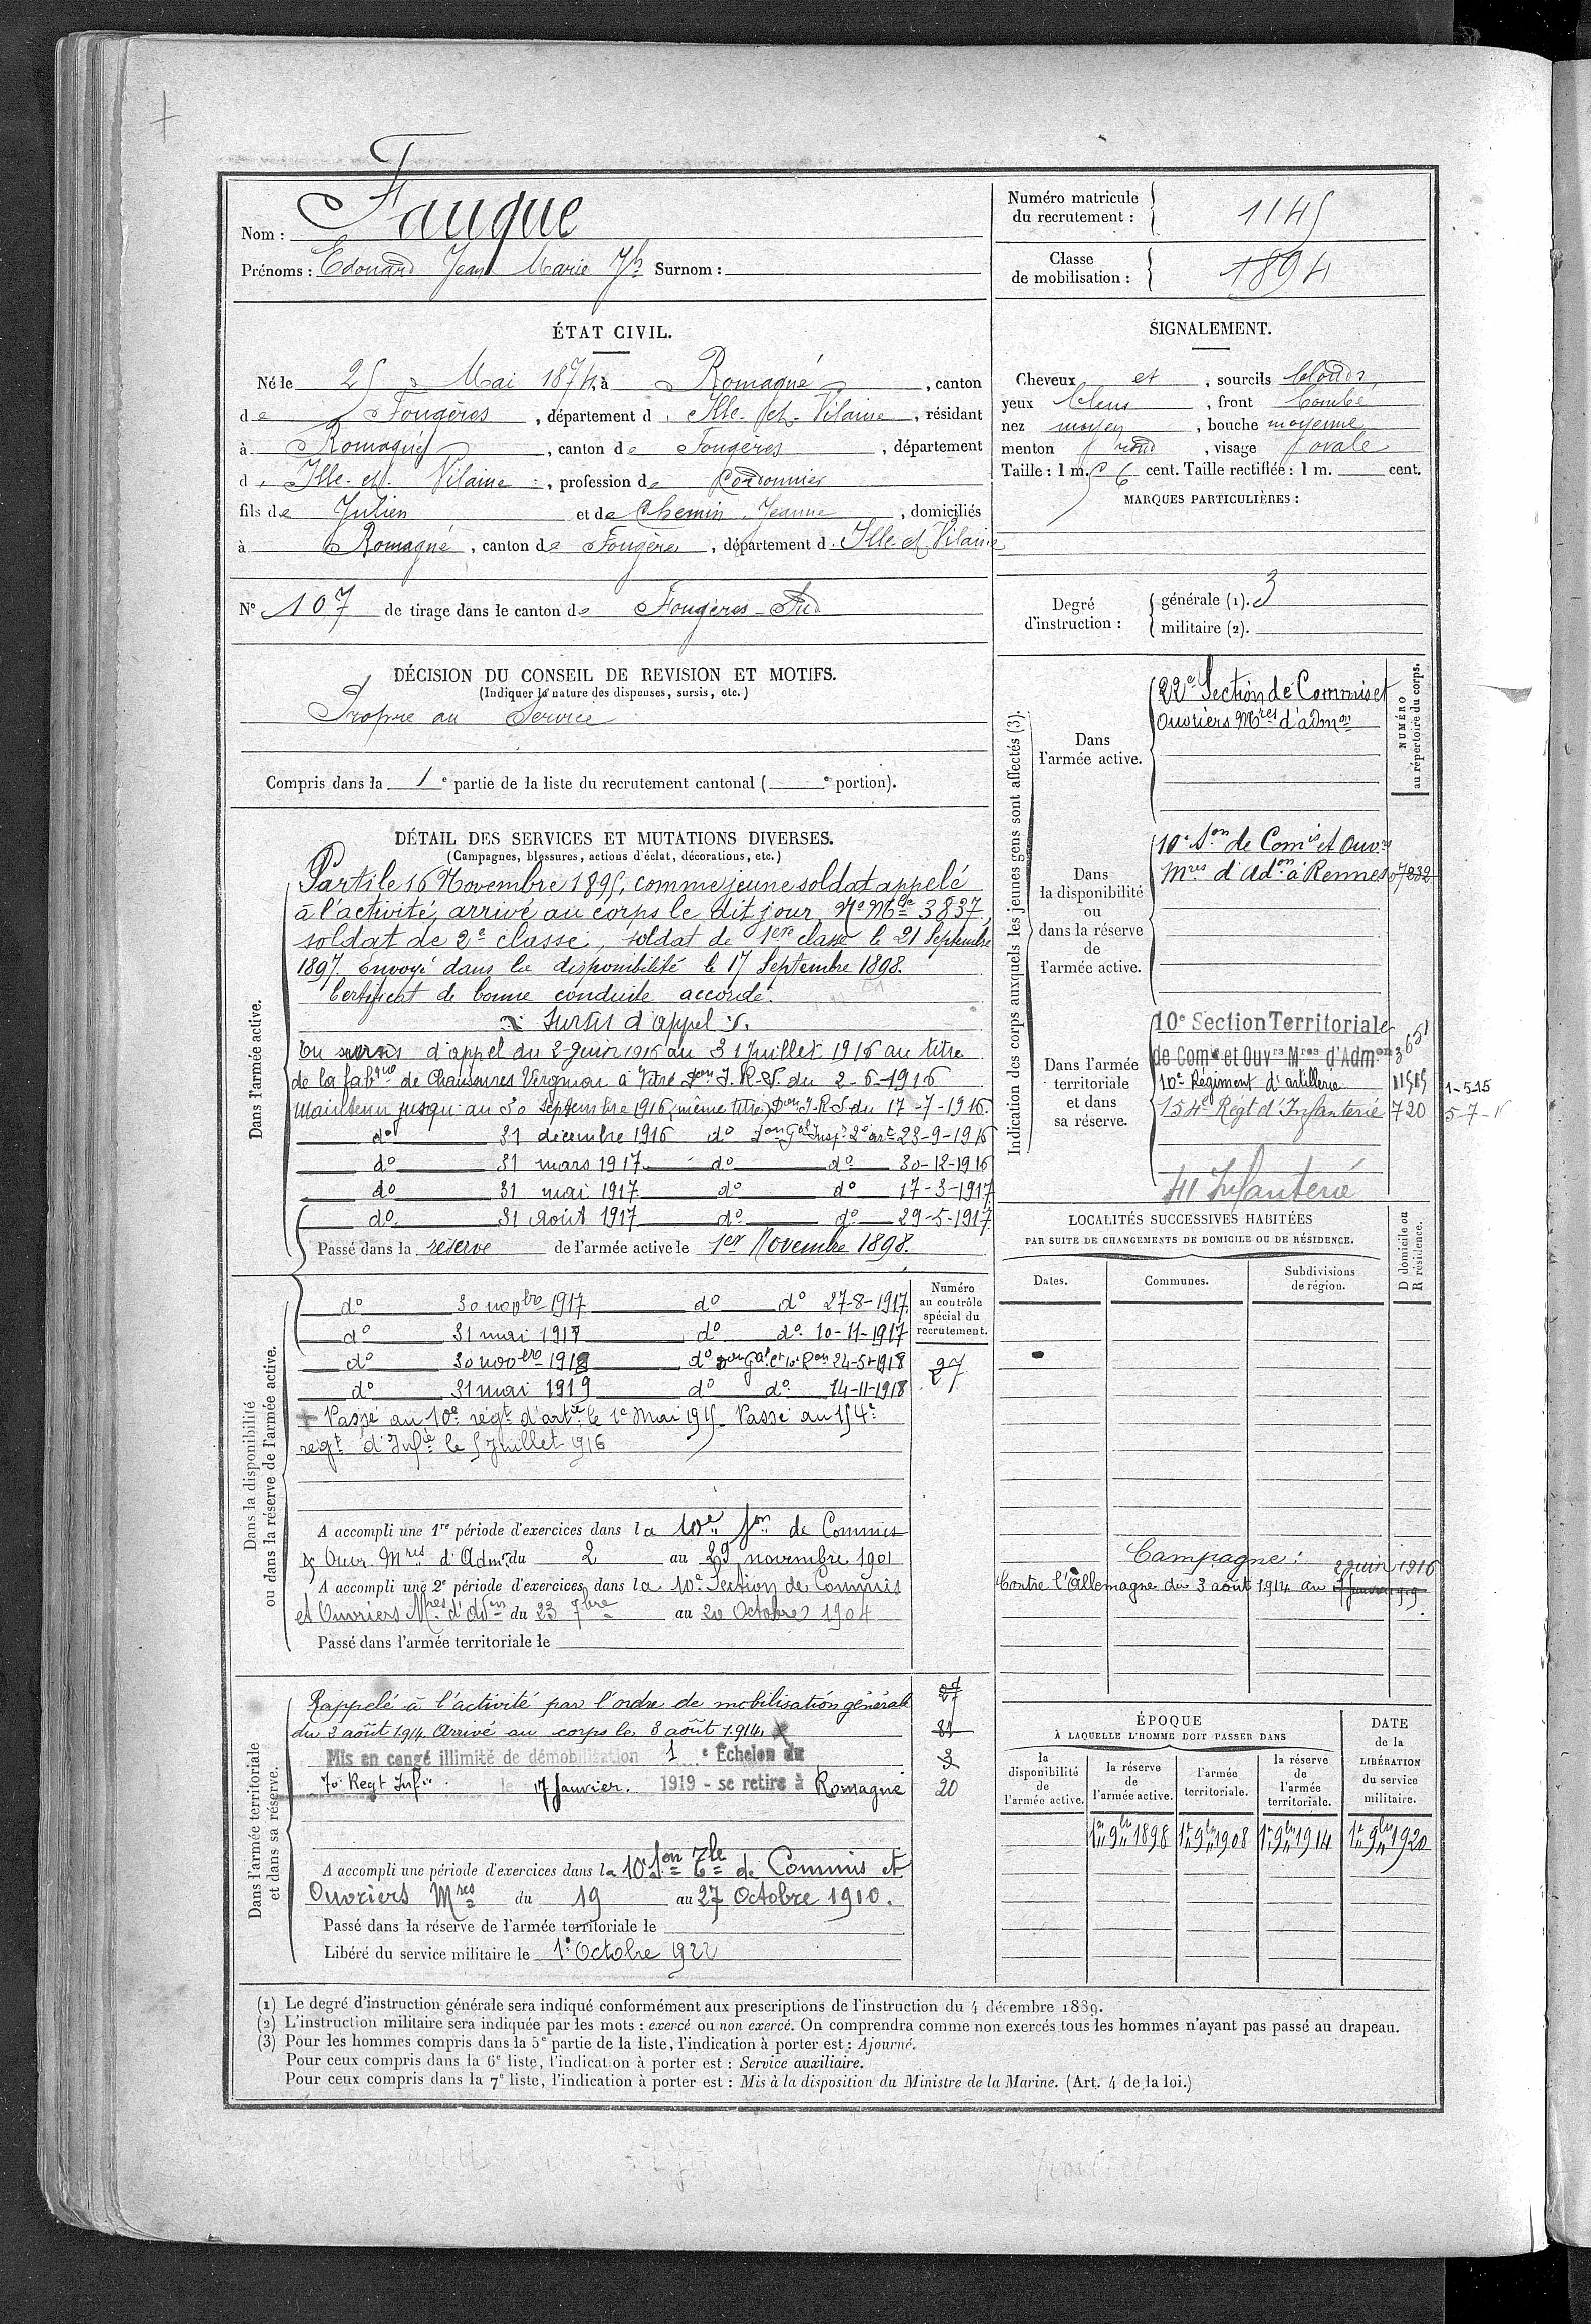 Nom : Fauque
Prénoms : Edouard Jean Marie Jh Surnom :
Numéro matricule du recrutement : 1145
Classe de mobilisation : 1894
ÉTAT CIVIL.
Né le 25 Mai 1874, à Romagné, canton
de Fougères, département d'Ille-et-Vilaine, résidant
à Romagné, canton de Fougères, département
d'Ille-et-Vilaine, profession de Cordonnier
fils de Julien et de Chemin Jeanne, domiciliés
à Romagné, canton de Fougères, département d'Ille-et-Vilaine
N° 107 de tirage dans le canton de Fougères-Sud
SIGNALEMENT.
Cheveux et, sourcils blonds,
yeux bleus, front bombé
nez moyen, bouche moyenne
menton rond, visage ovale
Taille : 1 m. 56 cent. Taille rectifiée : 1 m. cent.
MARQUES PARTICULIÈRES :
Degré d'instruction : générale (1). 3
militaire (2).
DÉCISION DU CONSEIL DE REVISION ET MOTIFS.
(Indiquer la nature des dispenses, sursis, etc.)
Propre au Service
Compris dans la 1e partie de la liste du recrutement cantonal ( e portion).
DÉTAIL DES SERVICES ET MUTATIONS DIVERSES.
(Campagnes, blessures, actions d'éclat, décorations, etc.)
Dans l'armée active.
Parti le 16 Novembre 1895, comme jeune soldat appelé
à l'activité, arrivé au corps le dit jour, No Mle 3837,
soldat de 2e classe, soldat de 1ere classe le 21 Septembre
1897. Envoyé dans la disponibilité le 17 Septembre 1898.
Certificat de bonne conduite accordé.
Sursis d'appel
En sursis d'appel du 2 Juin 1916 au 31 Juillet 1916 au titre
de la fabque de Chaussures Vergnon à Vitré Don I.R.S. du 2-6-1916
Maintenu jusqu'au 30 septembre 1916 (même titre) Don I.R.S du 17-7-1916.
do 31 décembre 1916 do Don Gal Insp. 2e art 23-9-1916
do 31 mars 1917 do do 30-12-1916
do 31 mai 1917 do do 17-3-1917
do 31 Août 1917 do do 29-5-1917
Passé dans la réserve de l'armée active le 1er Novembre 1898.
Dans la disponibilité ou dans la réserve de l'armée active.
Numéro au contrôle spécial du recrutement.
27
do 30 novbre 1917 do do 27-8-1917
do 31 mai 1918 do do 10-11-1917
do 30 novbre 1918 do Don Gal et 10e Ron 24-5-1918
do 31 mai 1919 do do 14-11-1918
+ Passé au 10e régt d'artie le 1e Mai 1915. Passé au 154e
régt d'Infie le 5 Juillet 1916
A accompli une 1re période d'exercices dans la 10e Son de Commis
& Ouv. Mres d'Adm. du 2 au 29 novembre 1901
A accompli une 2e période d'exercices dans la 10e Section de Commis
et Ouvriers Mres d'Adon du 23 7bre au 20 Octobre 1904
Passé dans l'armée territoriale le
Dans l'armée territoriale et dans sa réserve.
Rappelé à l'activité par l'ordre de mobilisation générale
du 2 août 1914. Arrivé au corps le 3 août 1914.
Mis en congé illimité de démobilisation 1e Echelon du
70 Regt Infie le 17 Janvier. 1919 - se retire à Romagné
27
20
A accompli une période d'exercices dans la 10e Son Tle de Commis et
Ouvriers Mres du 19 au 27 Octobre 1910.
Passé dans la réserve de l'armée territoriale le
Libéré du service militaire le 1e Octobre 1922
Indication des corps auxquels les jeunes gens sont affectés (3).
NUMÉRO au répertoire du corps.
Dans l'armée active.
22e Section de Commis et
Ouvriers Mres d'admon
Dans la disponibilité ou dans la réserve de l'armée active.
10e Son de Comis et Ouvrs
Mres d'Adon à Rennes 07232
Dans l'armée territoriale et dans sa réserve.
10e Section Territoriale
de Comis et Ouvrs Mres d'Admon 3651
10e Régiment d'artillerie 11515 1-5-15
154e Régt d'Infanterie 720 5-7-16
41 Infanterie
LOCALITÉS SUCCESSIVES HABITÉES
PAR SUITE DE CHANGEMENTS DE DOMICILE OU DE RÉSIDENCE.
Dates. Communes. Subdivisions de région. D domicile ou R résidence.
Campagne :
2 Juin 1916
Contre l'Allemagne du 3 août 1914 au 17 janvier 1919
ÉPOQUE
À LAQUELLE L'HOMME DOIT PASSER DANS
la disponibilité de l'armée active.
la réserve de l'armée active.
l'armée territoriale.
la réserve de l'armée territoriale.
DATE de la LIBÉRATION du service militaire.
1er 9bre 1898 1er 9bre 1908 1er 9bre 1914 1er 9bre 1920
(1) Le degré d'instruction générale sera indiqué conformément aux prescriptions de l'instruction du 4 décembre 1889.
(2) L'instruction militaire sera indiquée par les mots : exercé ou non exercé. On comprendra comme non exercés tous les hommes n'ayant pas passé au drapeau.
(3) Pour les hommes compris dans la 5e partie de la liste, l'indication à porter est : Ajourné.
Pour ceux compris dans la 6e liste, l'indication à porter est : Service auxiliaire.
Pour ceux compris dans la 7e liste, l'indication à porter est : Mis à la disposition du Ministre de la Marine. (Art. 4 de la loi.)